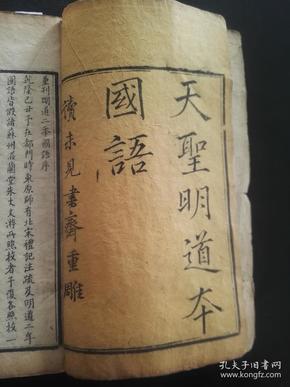 天聖明道本
國語
讀未見書齋重雕
重刊明道二年國語序
乾隆己丑予在都門時東原師有北宋禮記注疏及明道二年
國語皆假諸蘇州滋蘭堂朱丈文游所照校者予復各照校一
孔夫子旧书网